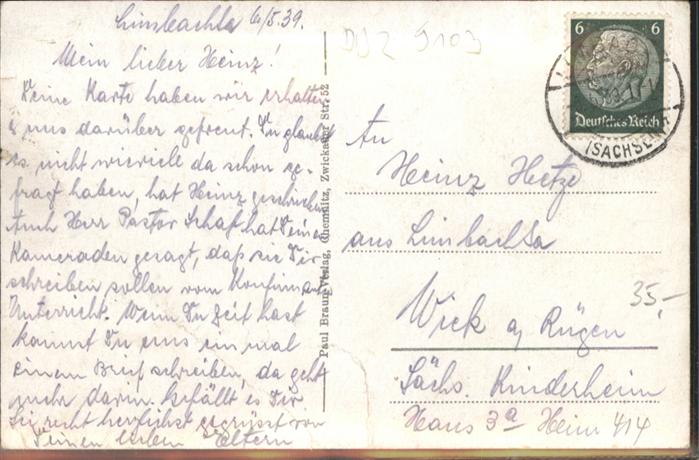 Limbach Sa 6/5.39.
Mein lieber Heinz!
Deine Karte haben wir erhalten
& uns darüber gefreut. Du glaubst
es nicht wieviele da schon ge-
fragt haben, hat Heinz geschrieben
Auch Herr Pastor Schaf hat Deinen
Kameraden gesagt, daß sie Dir
schreiben sollen vom Konfirmanden
Unterricht. Wenn Du Zeit hast
kannst Du uns ein mal
einen Brief schreiben, da geht
mehr darin. Gefällt es Dir
Sei recht herzlichst gegrüsst von
Deinen lieben Eltern
Paul Braun Verlag, Chemnitz, Zwickauer Str. 52
DJZ 9103
6 6
Deutsches Reich
(SACHSEN)
An
Heinz Hetze
aus Limbach Sa
Wick a/ Rügen
35,-
Sächs. Kinderheim
Haus 3a Heim 414